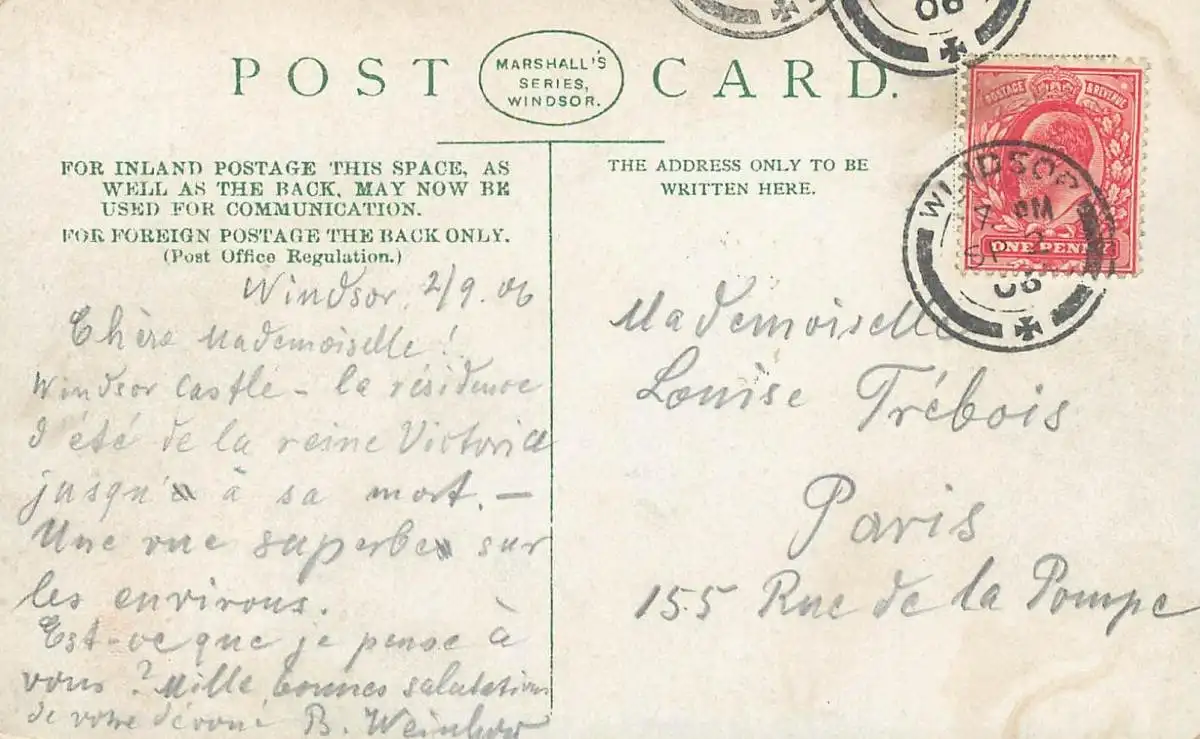 POST CARD.
MARSHALL'S
SERIES,
WINDSOR.
FOR INLAND POSTAGE THIS SPACE, AS
WELL AS THE BACK, MAY NOW BE
USED FOR COMMUNICATION.
FOR FOREIGN POSTAGE THE BACK ONLY.
(Post Office Regulation.)
THE ADDRESS ONLY TO BE
WRITTEN HERE.
06
POSTAGE & REVENUE
ONE PENNY
WINDSOR
PM
2
06
Windsor, 2/9.06
Chère Mademoiselle!
Windsor Castle – la résidence
d'été de la reine Victoria
jusqu' à sa mort. –
Une vue superbe sur
les environs.
Est-ce que je pense à
vous? Mille bonnes salutations
de votre dévoué B.
Mademoiselle
Louise Trébois
Paris
155 Rue de la Pompe